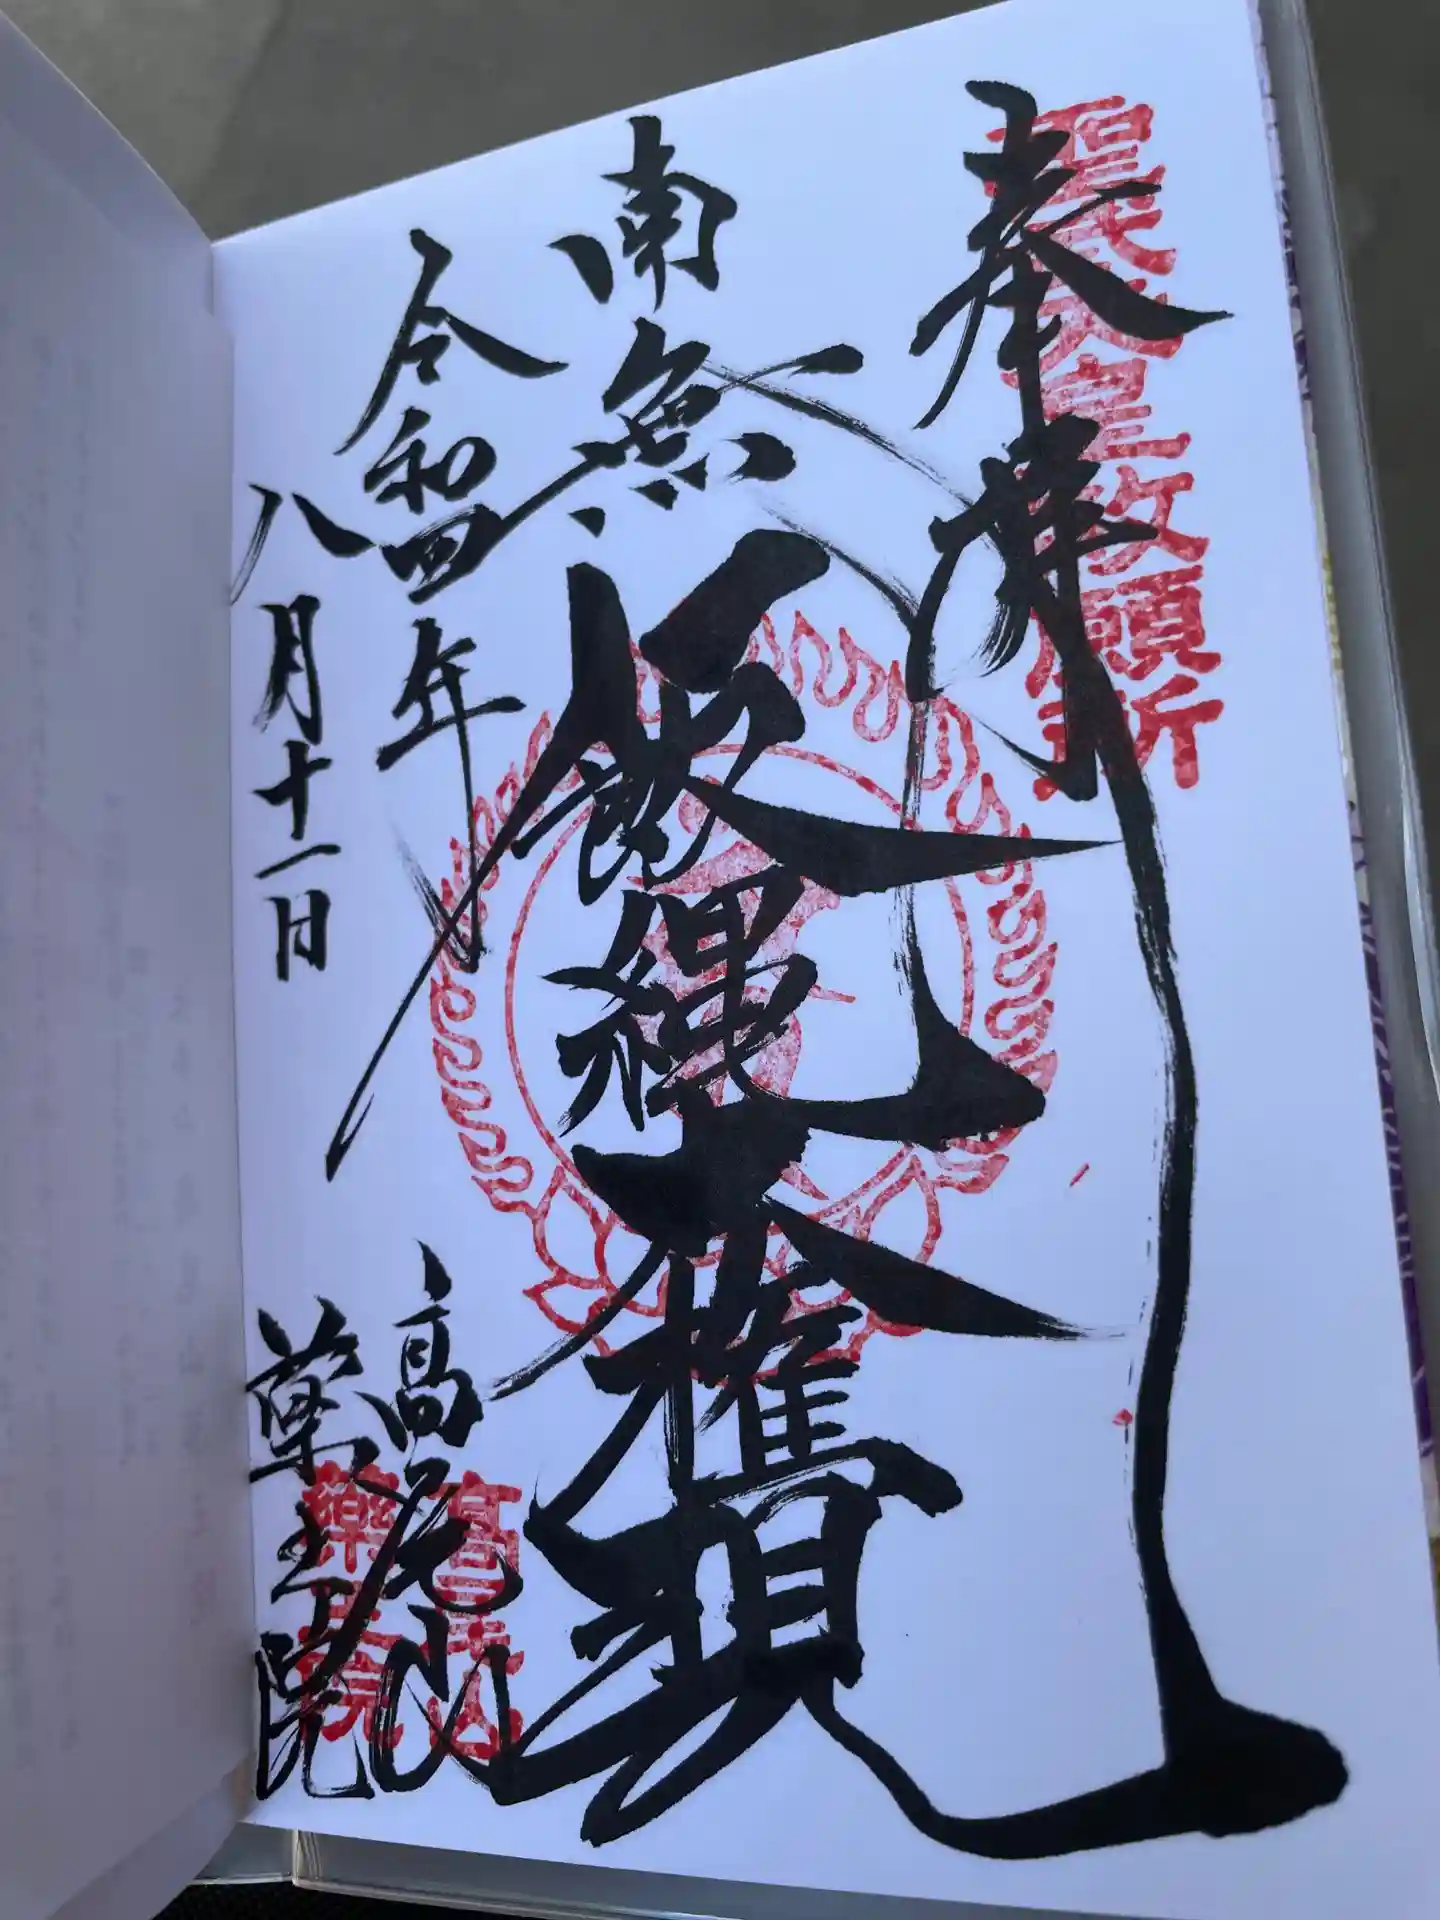 奉拝
聖武天皇勅願所
南無飯縄大権現
令和四年
八月十一日
高尾山
薬王院
高尾山
薬王院